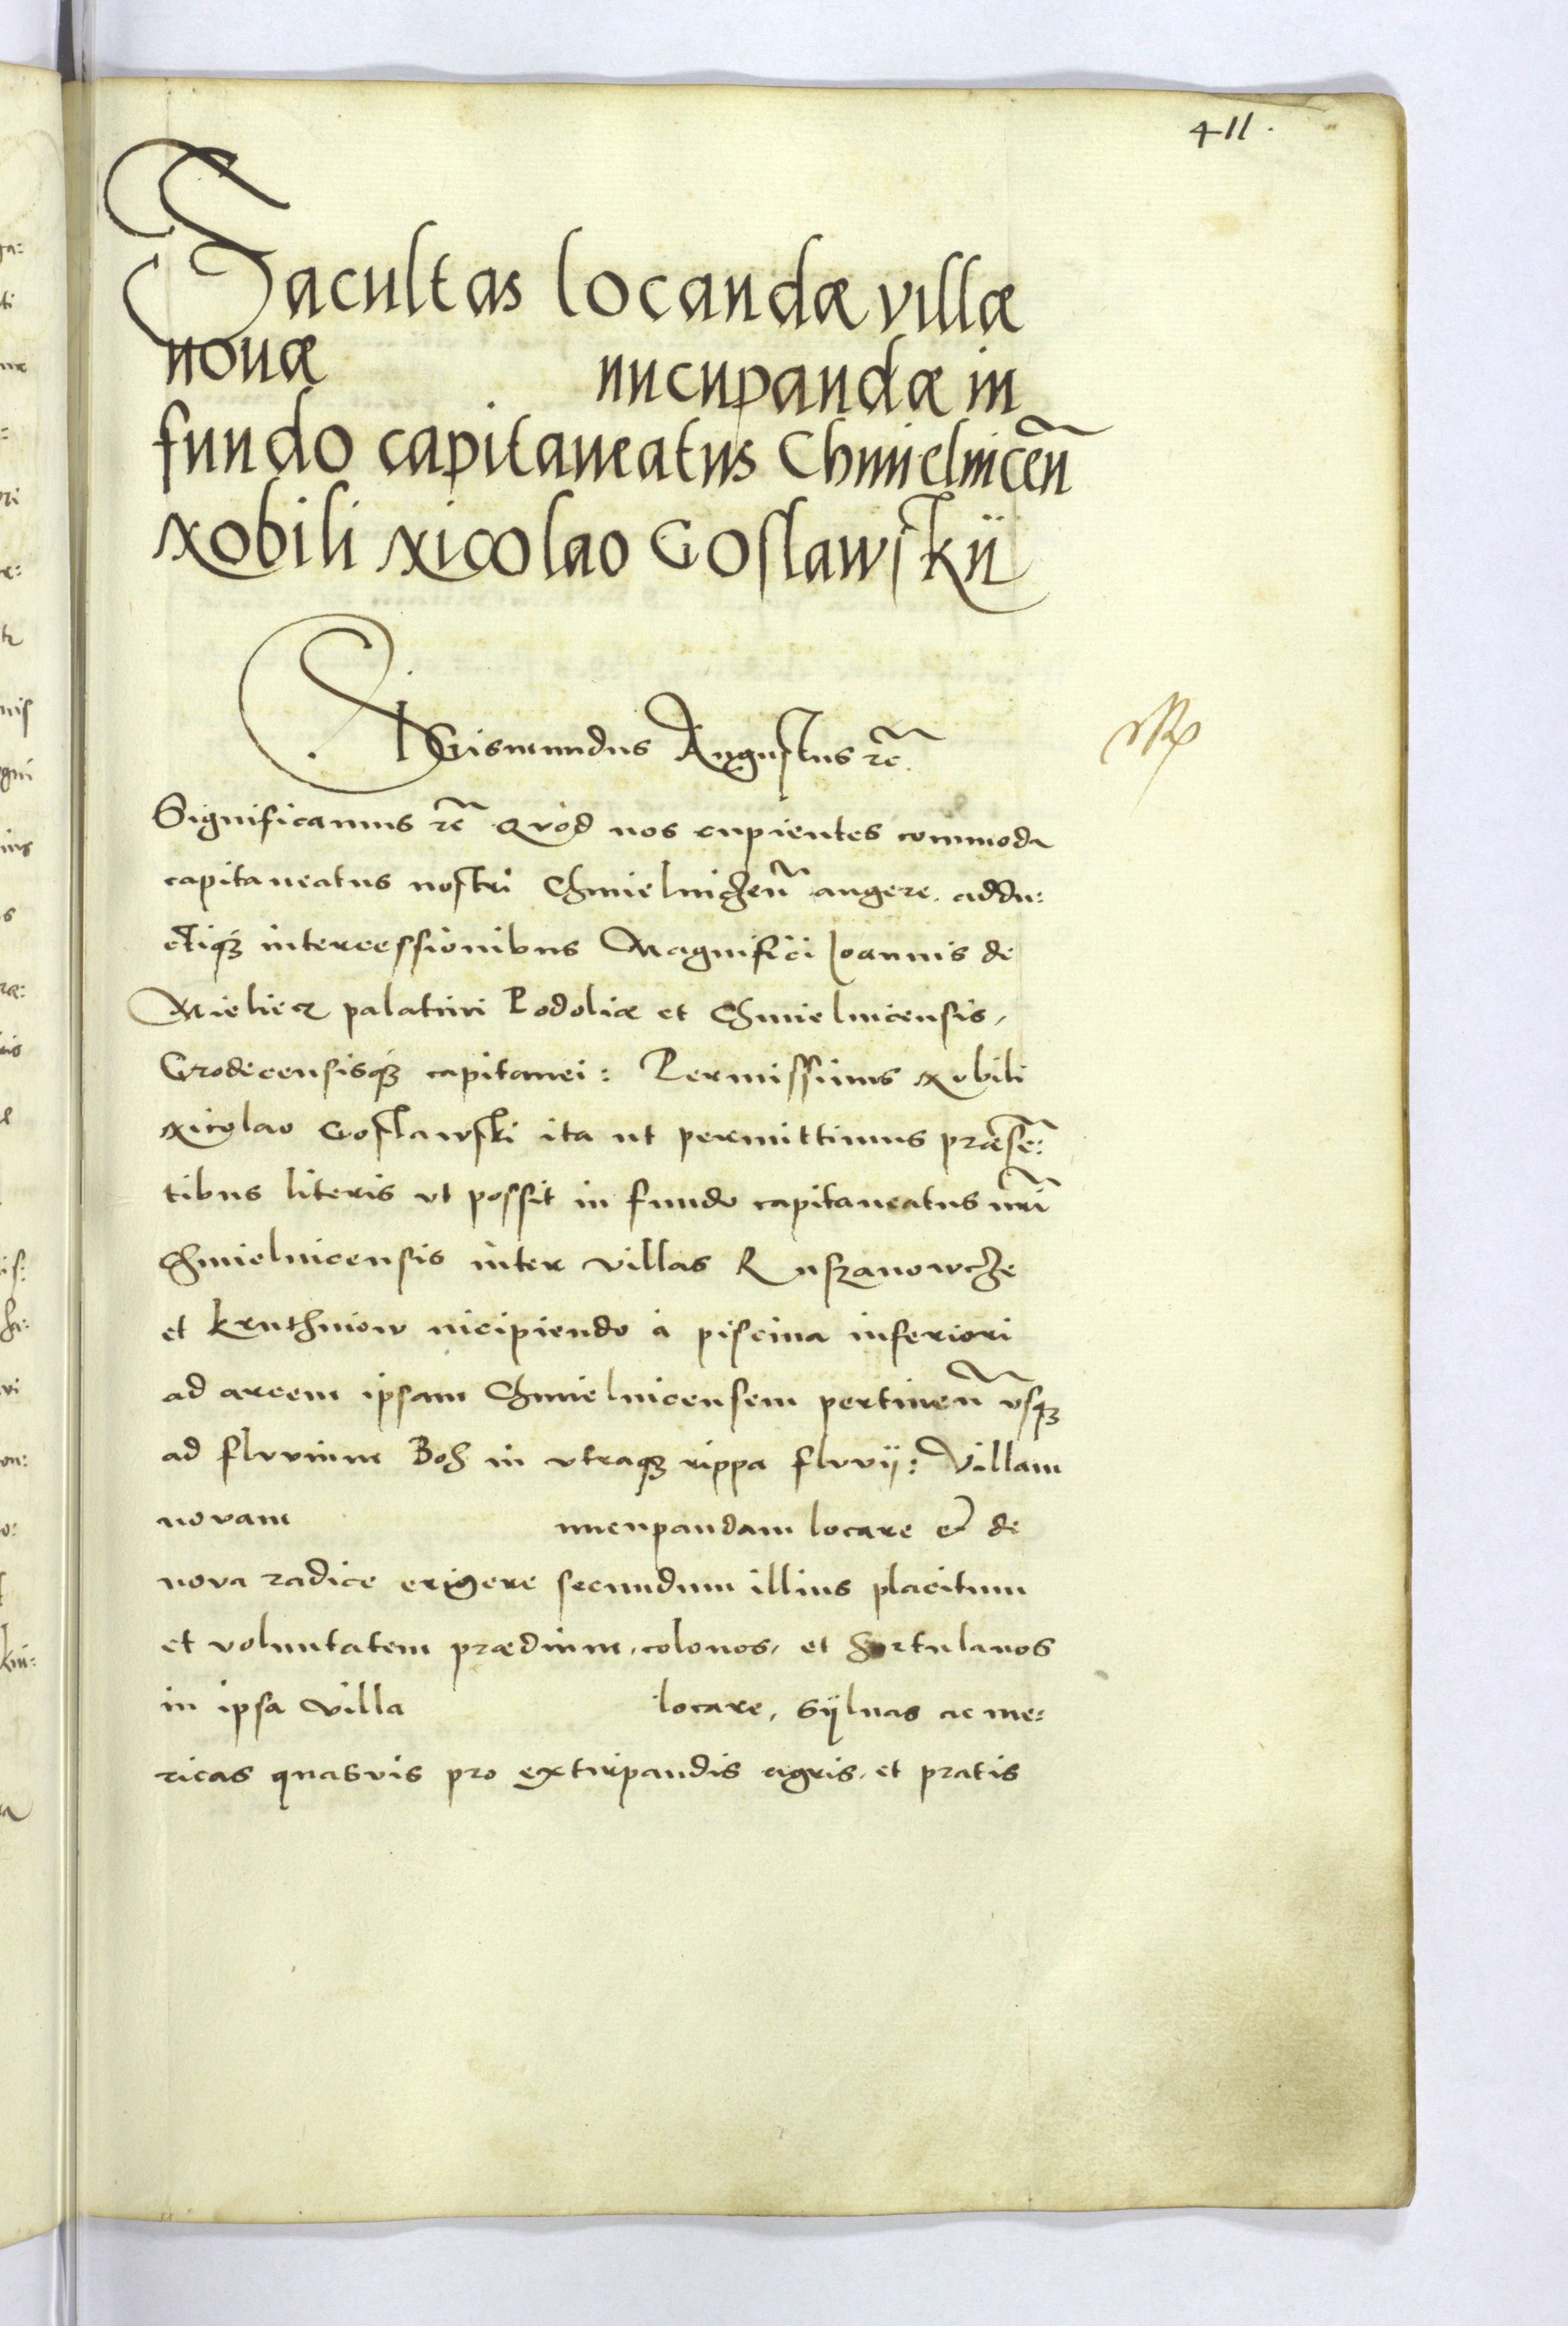 411.
Facultas locandæ villæ
nouæ nucupandæ in
fundo capitaneatus Chmielnicen̄
Nobili Nicolao Goslawskii
SIGismundus Augustus rc̄.
Significamus rc̄ Quod nos cupientes commoda
capitaneatus nostri Chmielniczen̄ augere. addu:
ctiqꝫ intercessionibus Magnifici Ioannis de
Mieliecz palatini Podoliæ et Chmielnicensis,
Grodecensisqꝫ capitanei: Permissimus Nobili
Nicolao Goslawski ita ut permittimus præsē:
tibus literis ut possit in fundo capitaneatus nr̄i
Chmielnicensis inter villas Ruszanowcze
et Kruthniow incipiendo à piscina inferiori
ad arcem ipsam Chmielnicensem pertinen̄ vsqꝫ
ad fluuium Boh in vtraqꝫ rippa fluvij: Villam
novam nucupandam locare et de
nova radice erigere secundum illius placitum
et voluntatem prædium, colonos, et hortulanos
in ipsa villa locare, Sÿluas ac me:
ricas quasvis pro extirpandis agris, et pratis